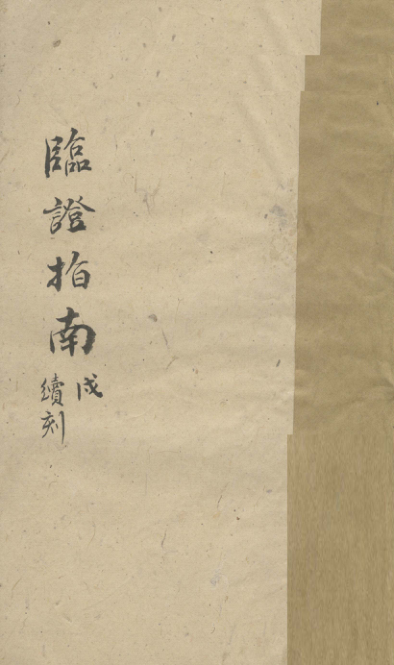 臨證指南
戌
續刻